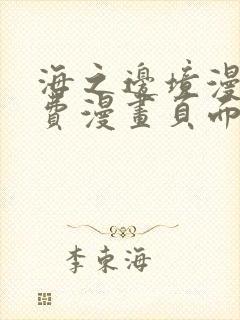 海之邊境漫
費漫畫頁面
李東海